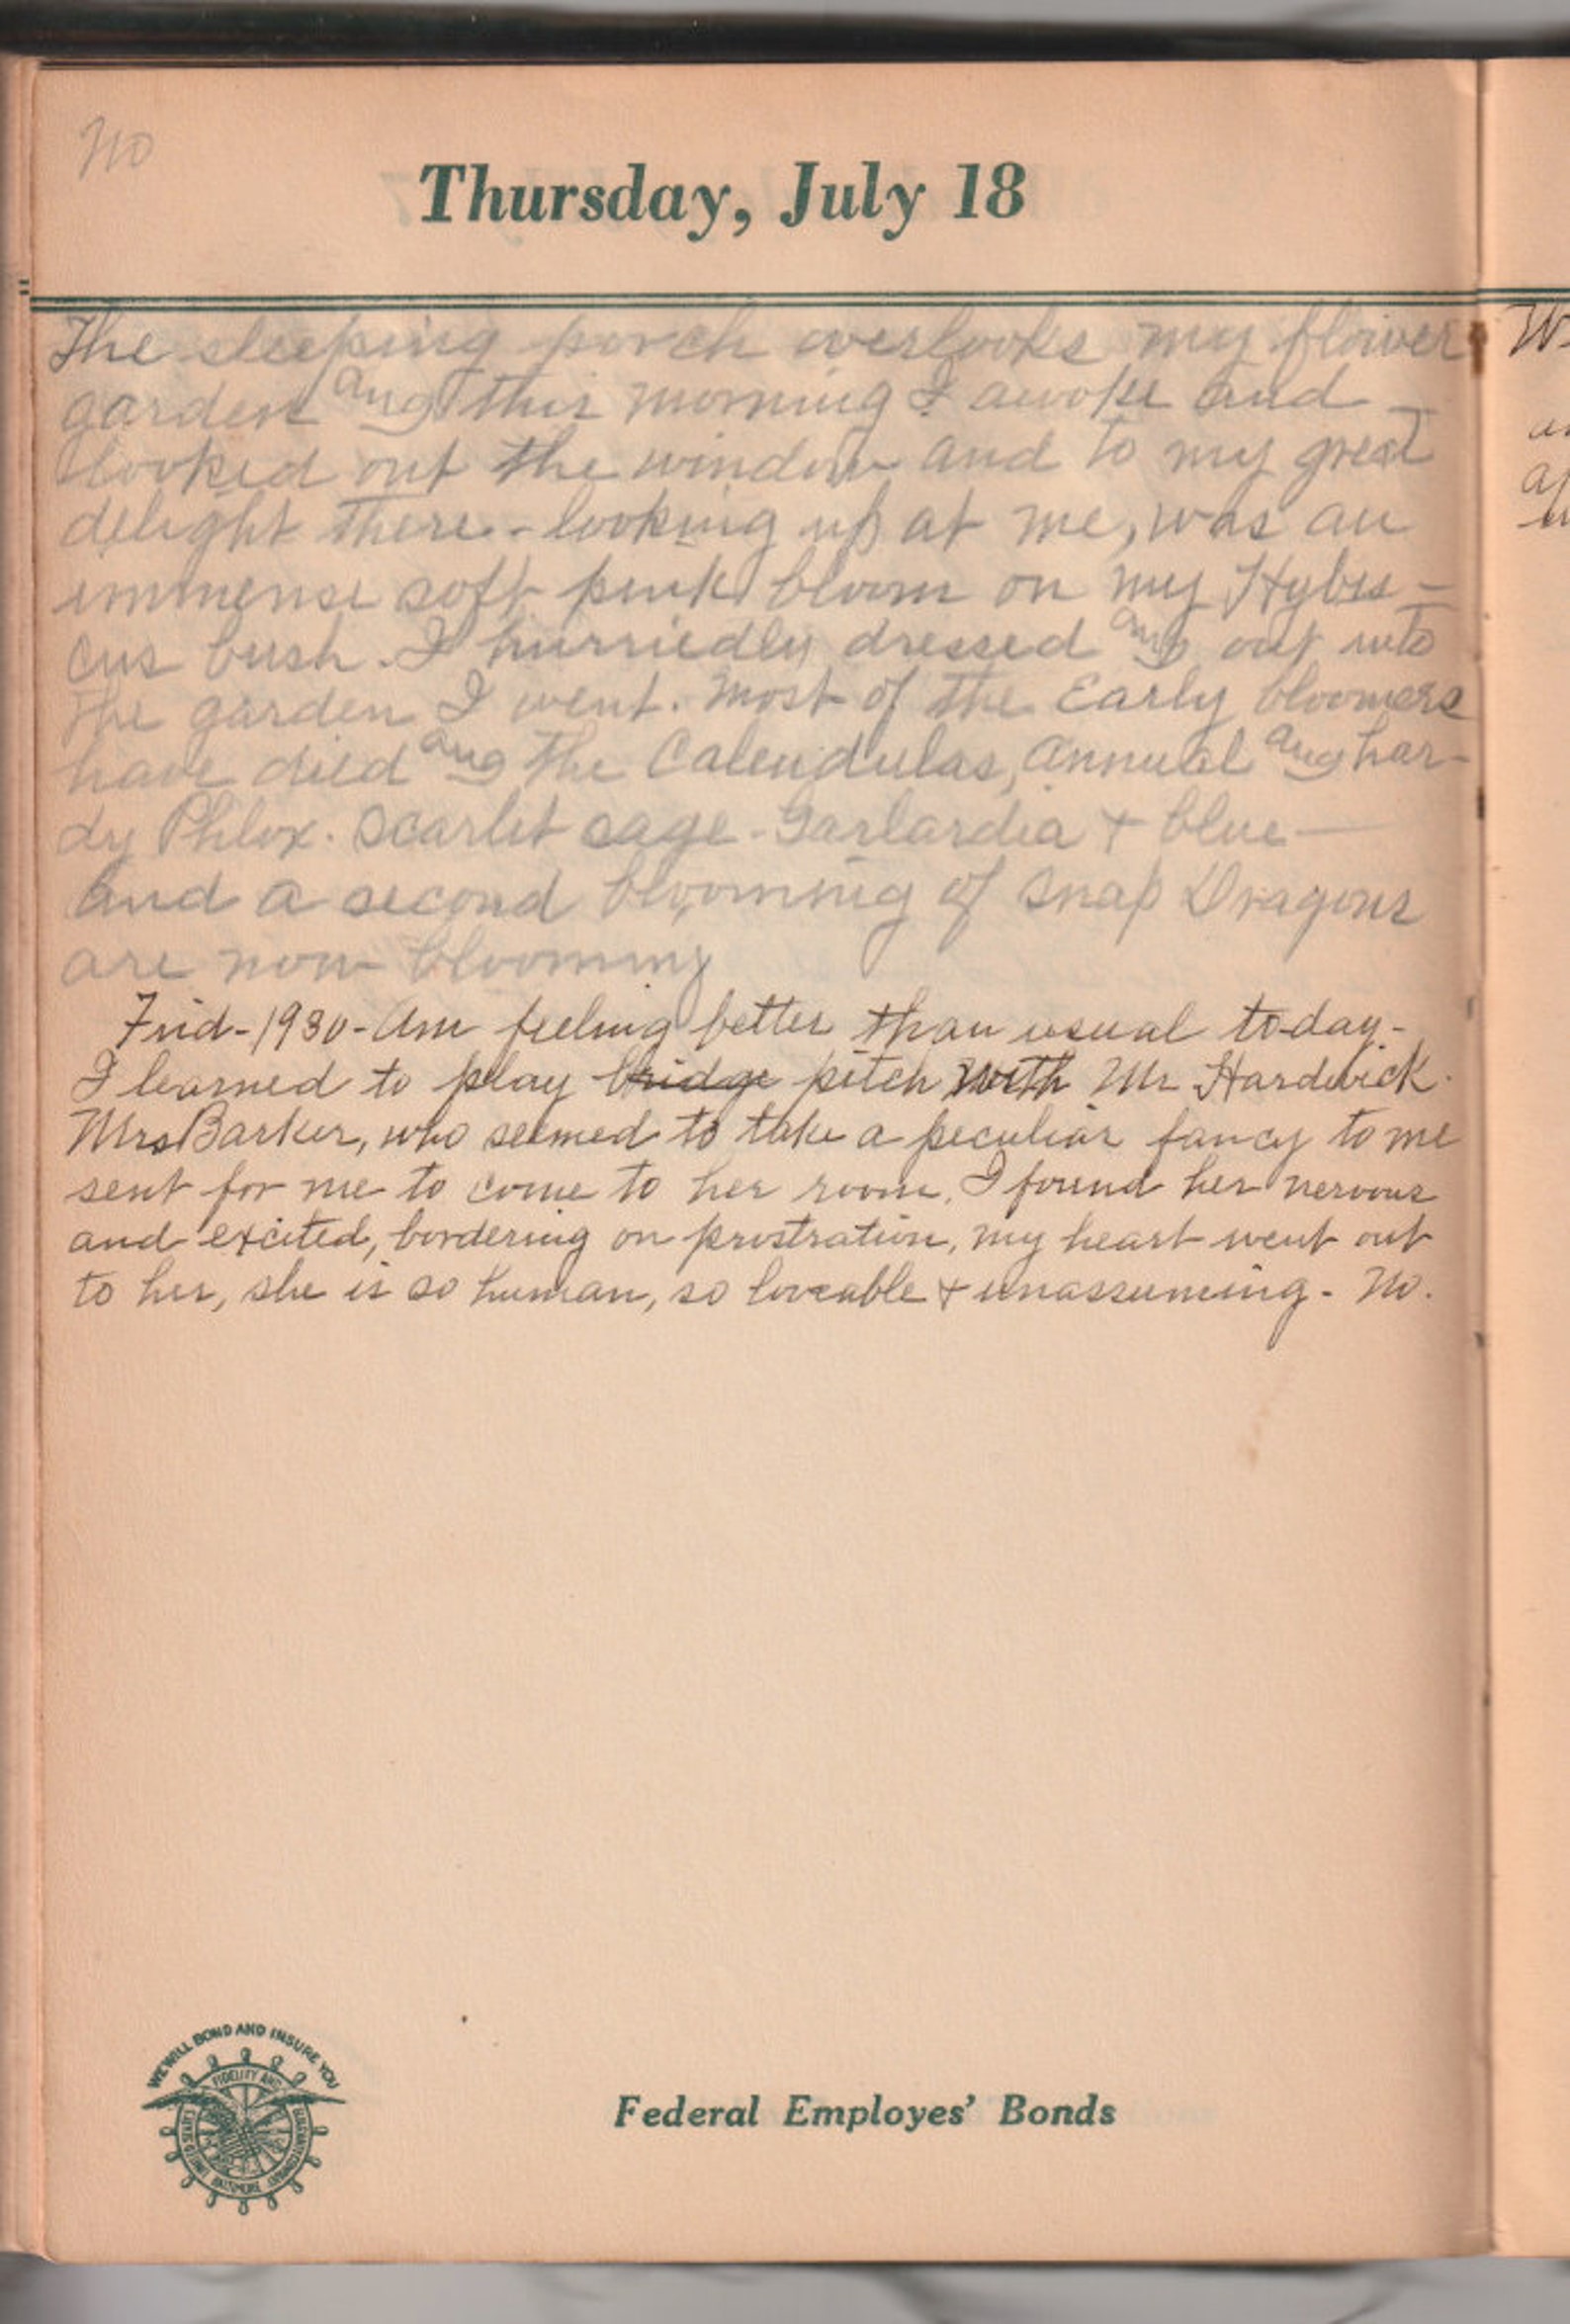 no
Thursday, July 18
The sleeping porch overlooks my flower
garden and this morning I awoke and
looked out the window and to my great
delight there - looking up at me, was an
immense soft pink bloom on my Hybis-
cus bush. I hurriedly dressed and out into
the garden I went. Most of the Early bloomers
have died and the Calendulas, annual and har-
dy Phlox. Scarlet sage - Garlardia + blue —
and a second blooming of Snap Dragons
are now blooming
Frid - 1930 - Am feeling better than usual to-day -
I learned to play bridge pitch with Mr Hardwick.
Mrs Barker, who seemed to take a peculiar fancy to me
sent for me to come to her room. I found her nervous
and excited, bordering on prostration, my heart went out
to her, she is so human, so loveable + unassuming - no.
WE WILL BOND AND INSURE YOU
FIDELITY AND
BALTIMORE
Federal Employes' Bonds